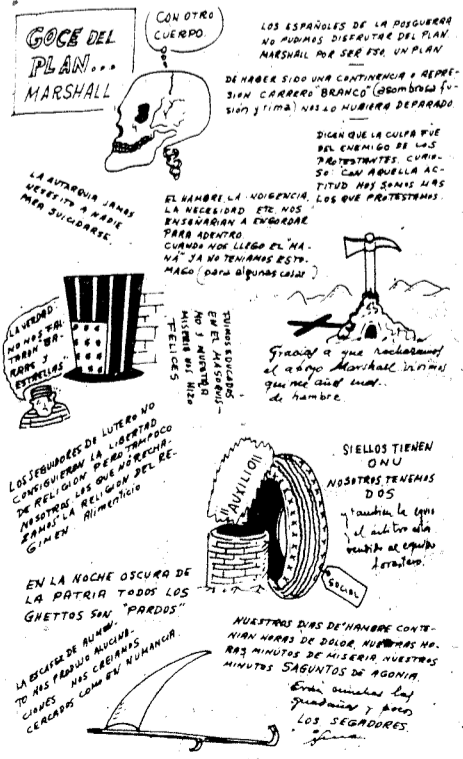 GOCE DEL
PLAN...
MARSHALL
CON OTRO
CUERPO.
LOS ESPAÑOLES DE LA POSGUERRA
NO PUDIMOS DISFRUTAR DEL PLAN
MARSHALL POR SER ESO, UN PLAN
DE HABER SIDO UNA CONTINENCIA O REPRE-
SION CARRERO "BRANCO" (asombrosa fu-
sión y rima) NOS LO HUBIERA DEPARADO.
DICEN QUE LA CULPA FUE
DEL ENEMIGO DE LOS
PROTESTANTES. CURIO-
SO: CON AQUELLA AC-
TITUD NOS SOMOS MAS
LOS QUE PROTESTAMOS.
LA AUTARQUIA JAMAS
NECESITO A NADIE
PARA SUICIDARSE.
EL HAMBRE, LA INDIGENCIA,
LA NECESIDAD ETC, NOS
ENSEÑARIAN A ENGORDAR
PARA ADENTRO.
CUANDO NOS LLEGO EL "MA-
NÁ" YA NO TENIAMOS ESTO-
MAGO (para algunas cosas)
LA VERDAD
NO NOS FAL-
TARON "BA-
RRAS Y
ESTRELLAS"
FUIMOS EDUCADOS
EN EL MASOQUIS-
MO Y NUESTRA
MISERIA NOS HIZO
FELICES
Gracias a que rechazamos
el apoyo Marshall vivimos
que mil años
de hambre.
LOS SEGUIDORES DE LUTERO NO
CONSIGUIERON LA LIBERTAD
DE RELIGION PERO TAMPOCO
NOSOTROS LOS QUE NO RECHA-
ZAMOS LA RELIGION DEL RE-
GIMEN. Alimenticio
¡¡¡AUXILIO!!!
SOCIAL
SI ELLOS TIENEN
ONU
NOSOTROS TENEMOS
DOS
y tambien la
y el árbitro está
vendido al equipo
forastero.
EN LA NOCHE OSCURA DE
LA PATRIA TODOS LOS
GHETTOS SON "PARDOS"
LA ESCASEZ DE ALIMEN-
TO NOS PRODUJO ALUCINA-
CIONES NOS CREIAMOS
CERCADOS COMO EN NUMANCIA.
NUESTROS DIAS DE HAMBRE CONTE-
NIAN HORAS DE DOLOR, NUESTRAS HO-
RAS MINUTOS DE MISERIA NUESTROS
MINUTOS SAGUNTOS DE AGONIA.
Eran muchas las
guadañas y pocos
LOS SEGADORES.